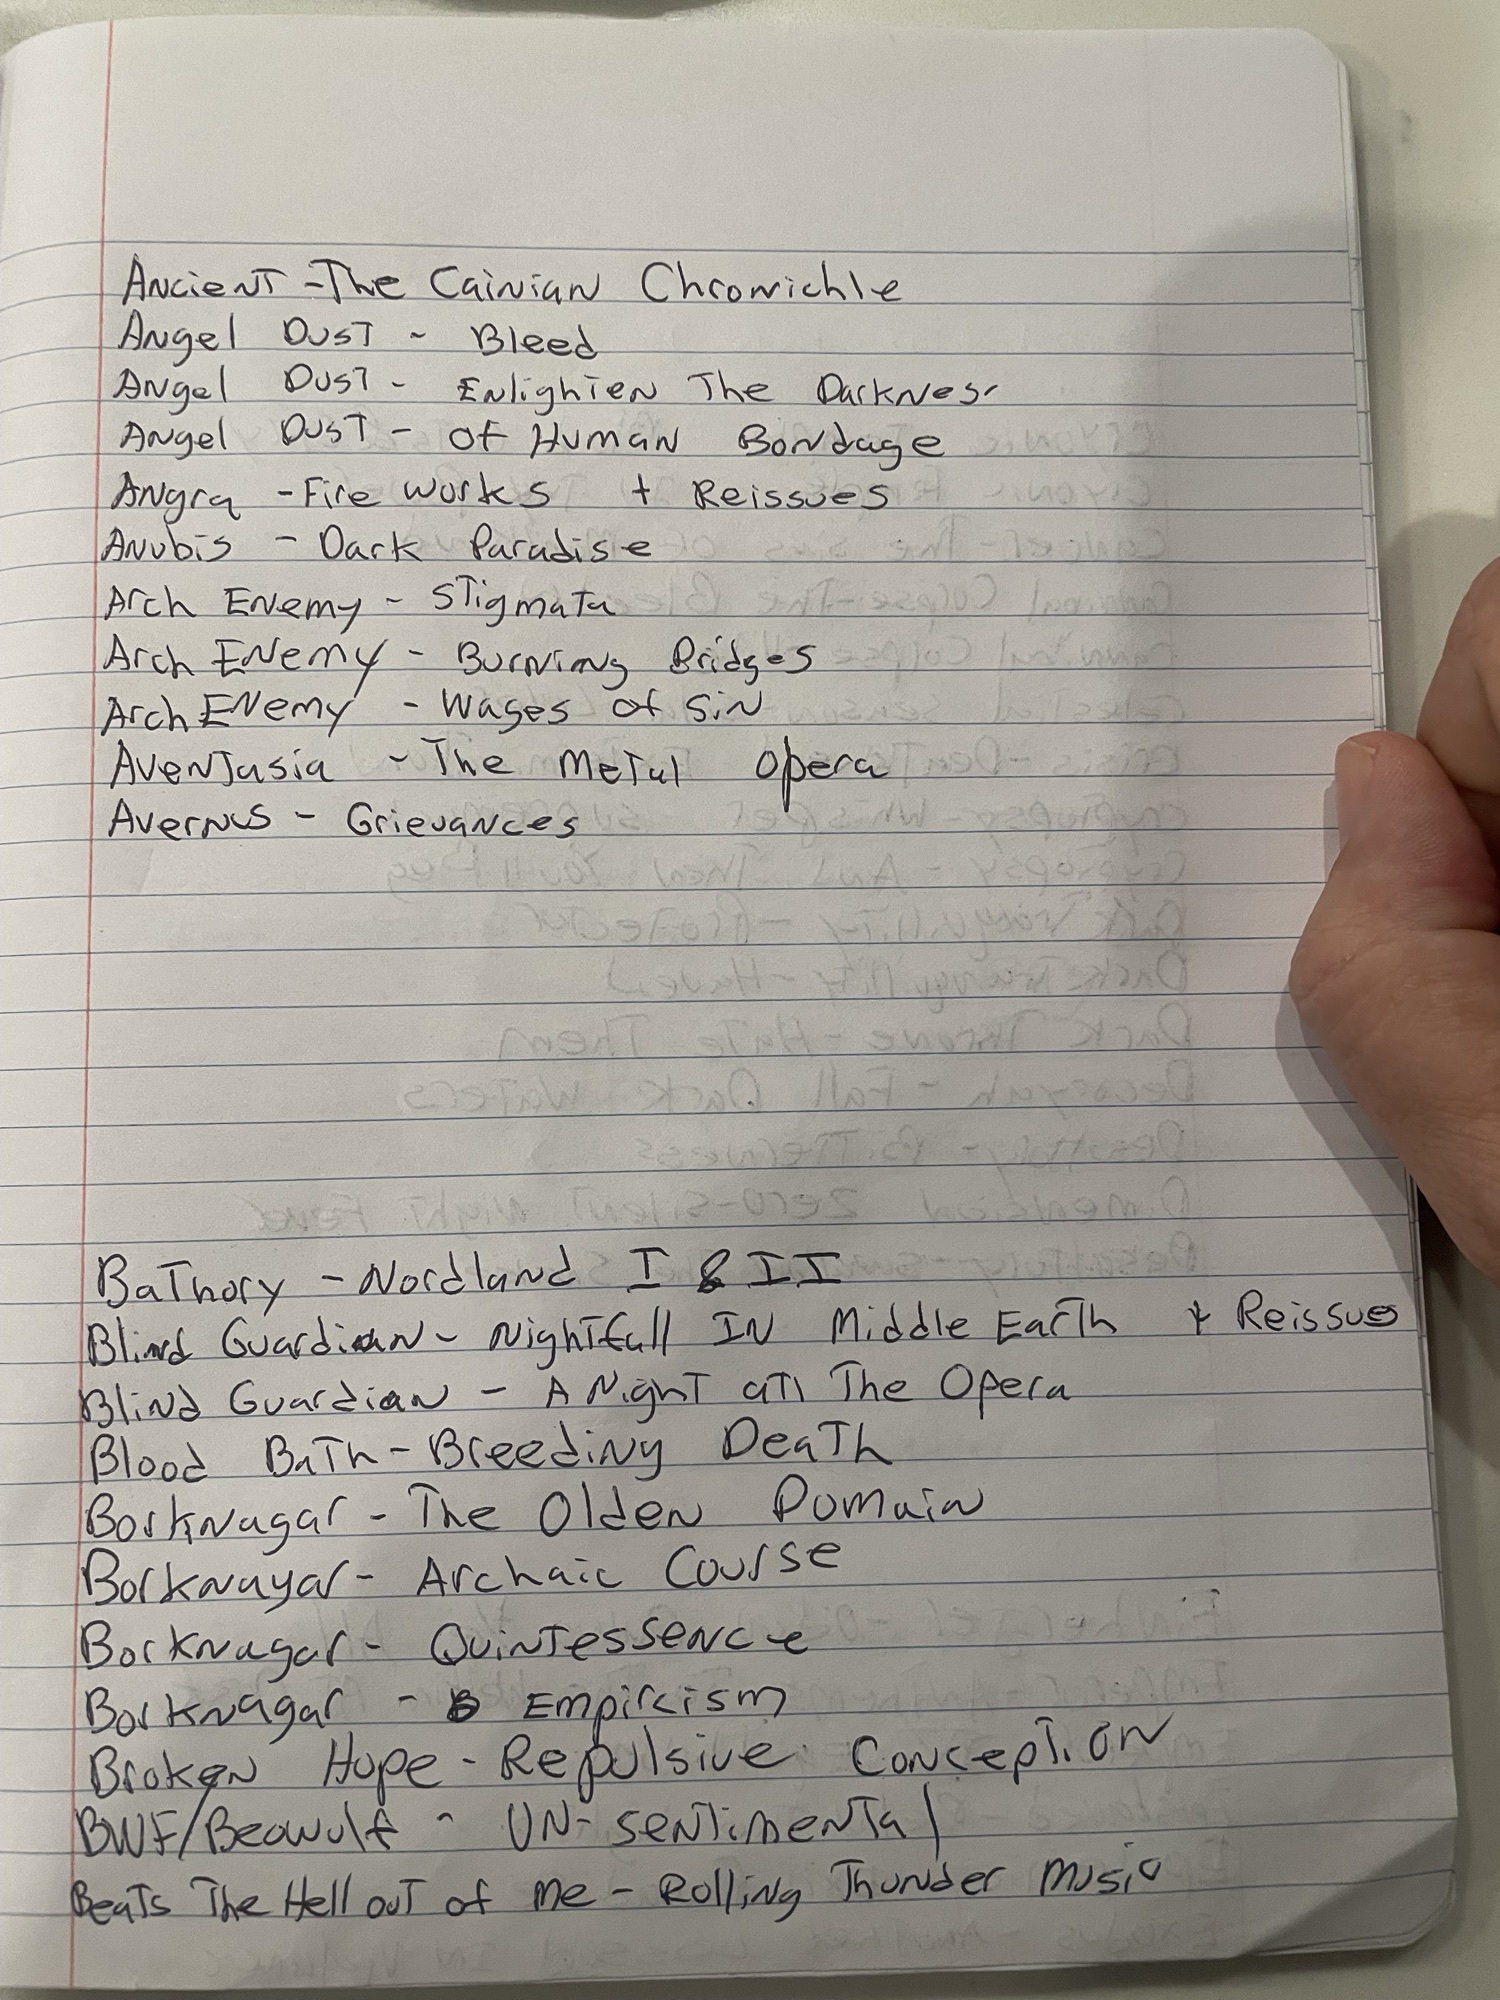 Ancient - The Cainian Chronichle
Angel Dust - Bleed
Angel Dust - Enlighten The Darkness
Angel Dust - Of Human Bondage
Angra - Fire works + Reissues
Anubis - Dark Paradise
Arch Enemy - Stigmata
Arch Enemy - Burning Bridges
Arch Enemy - Wages of Sin
Aventasia - The Metal Opera
Avernus - Grievances
Bathory - Nordland I & II
Blind Guardian - Nightfall IN Middle Earth + Reissues
Blind Guardian - A Night at The Opera
Blood Bath - Breeding Death
Borknagar - The Olden Domain
Borknagar - Archaic Course
Borknagar - Quintessence
Borknagar - Empircism
Broken Hope - Repulsive Conception
BWF/Beowulf - UN-sentimental
Beats The Hell out of Me - Rolling Thunder Music